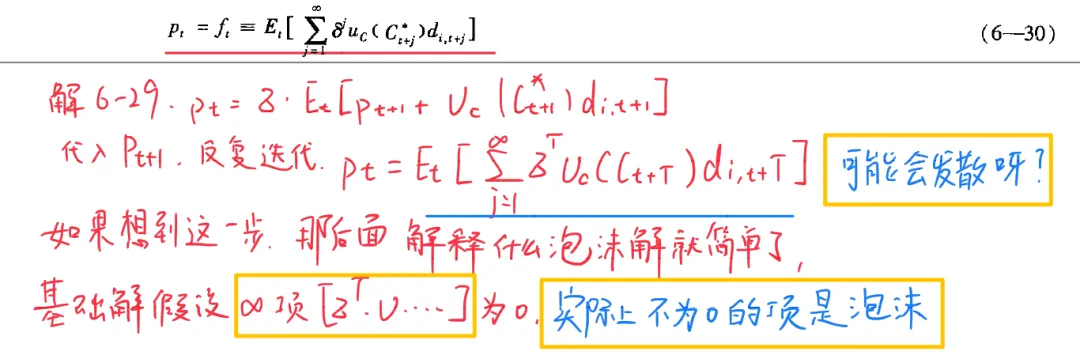 p_t = f_t ≡ E_t[ ∑_{j=1}^{∞} δ^j u_C(C^*_{t+j})d_{i,t+j}] (6—30)
解6-29. p_t = δ·E_t[p_{t+1} + U_c(C^*_{t+1})d_{i,t+1}]
代入P_{t+1}, 反复迭代. p_t = E_t[∑_{j=1}^{∞} δ^T U_c(C_{t+T})d_{i,t+T}] 可能会发散呀?
如果想到这一步, 那后面解释什么泡沫解就简单了,
基础解假设 ∞项[δ^T·U····] 为0, 实际上不为0的项是泡沫